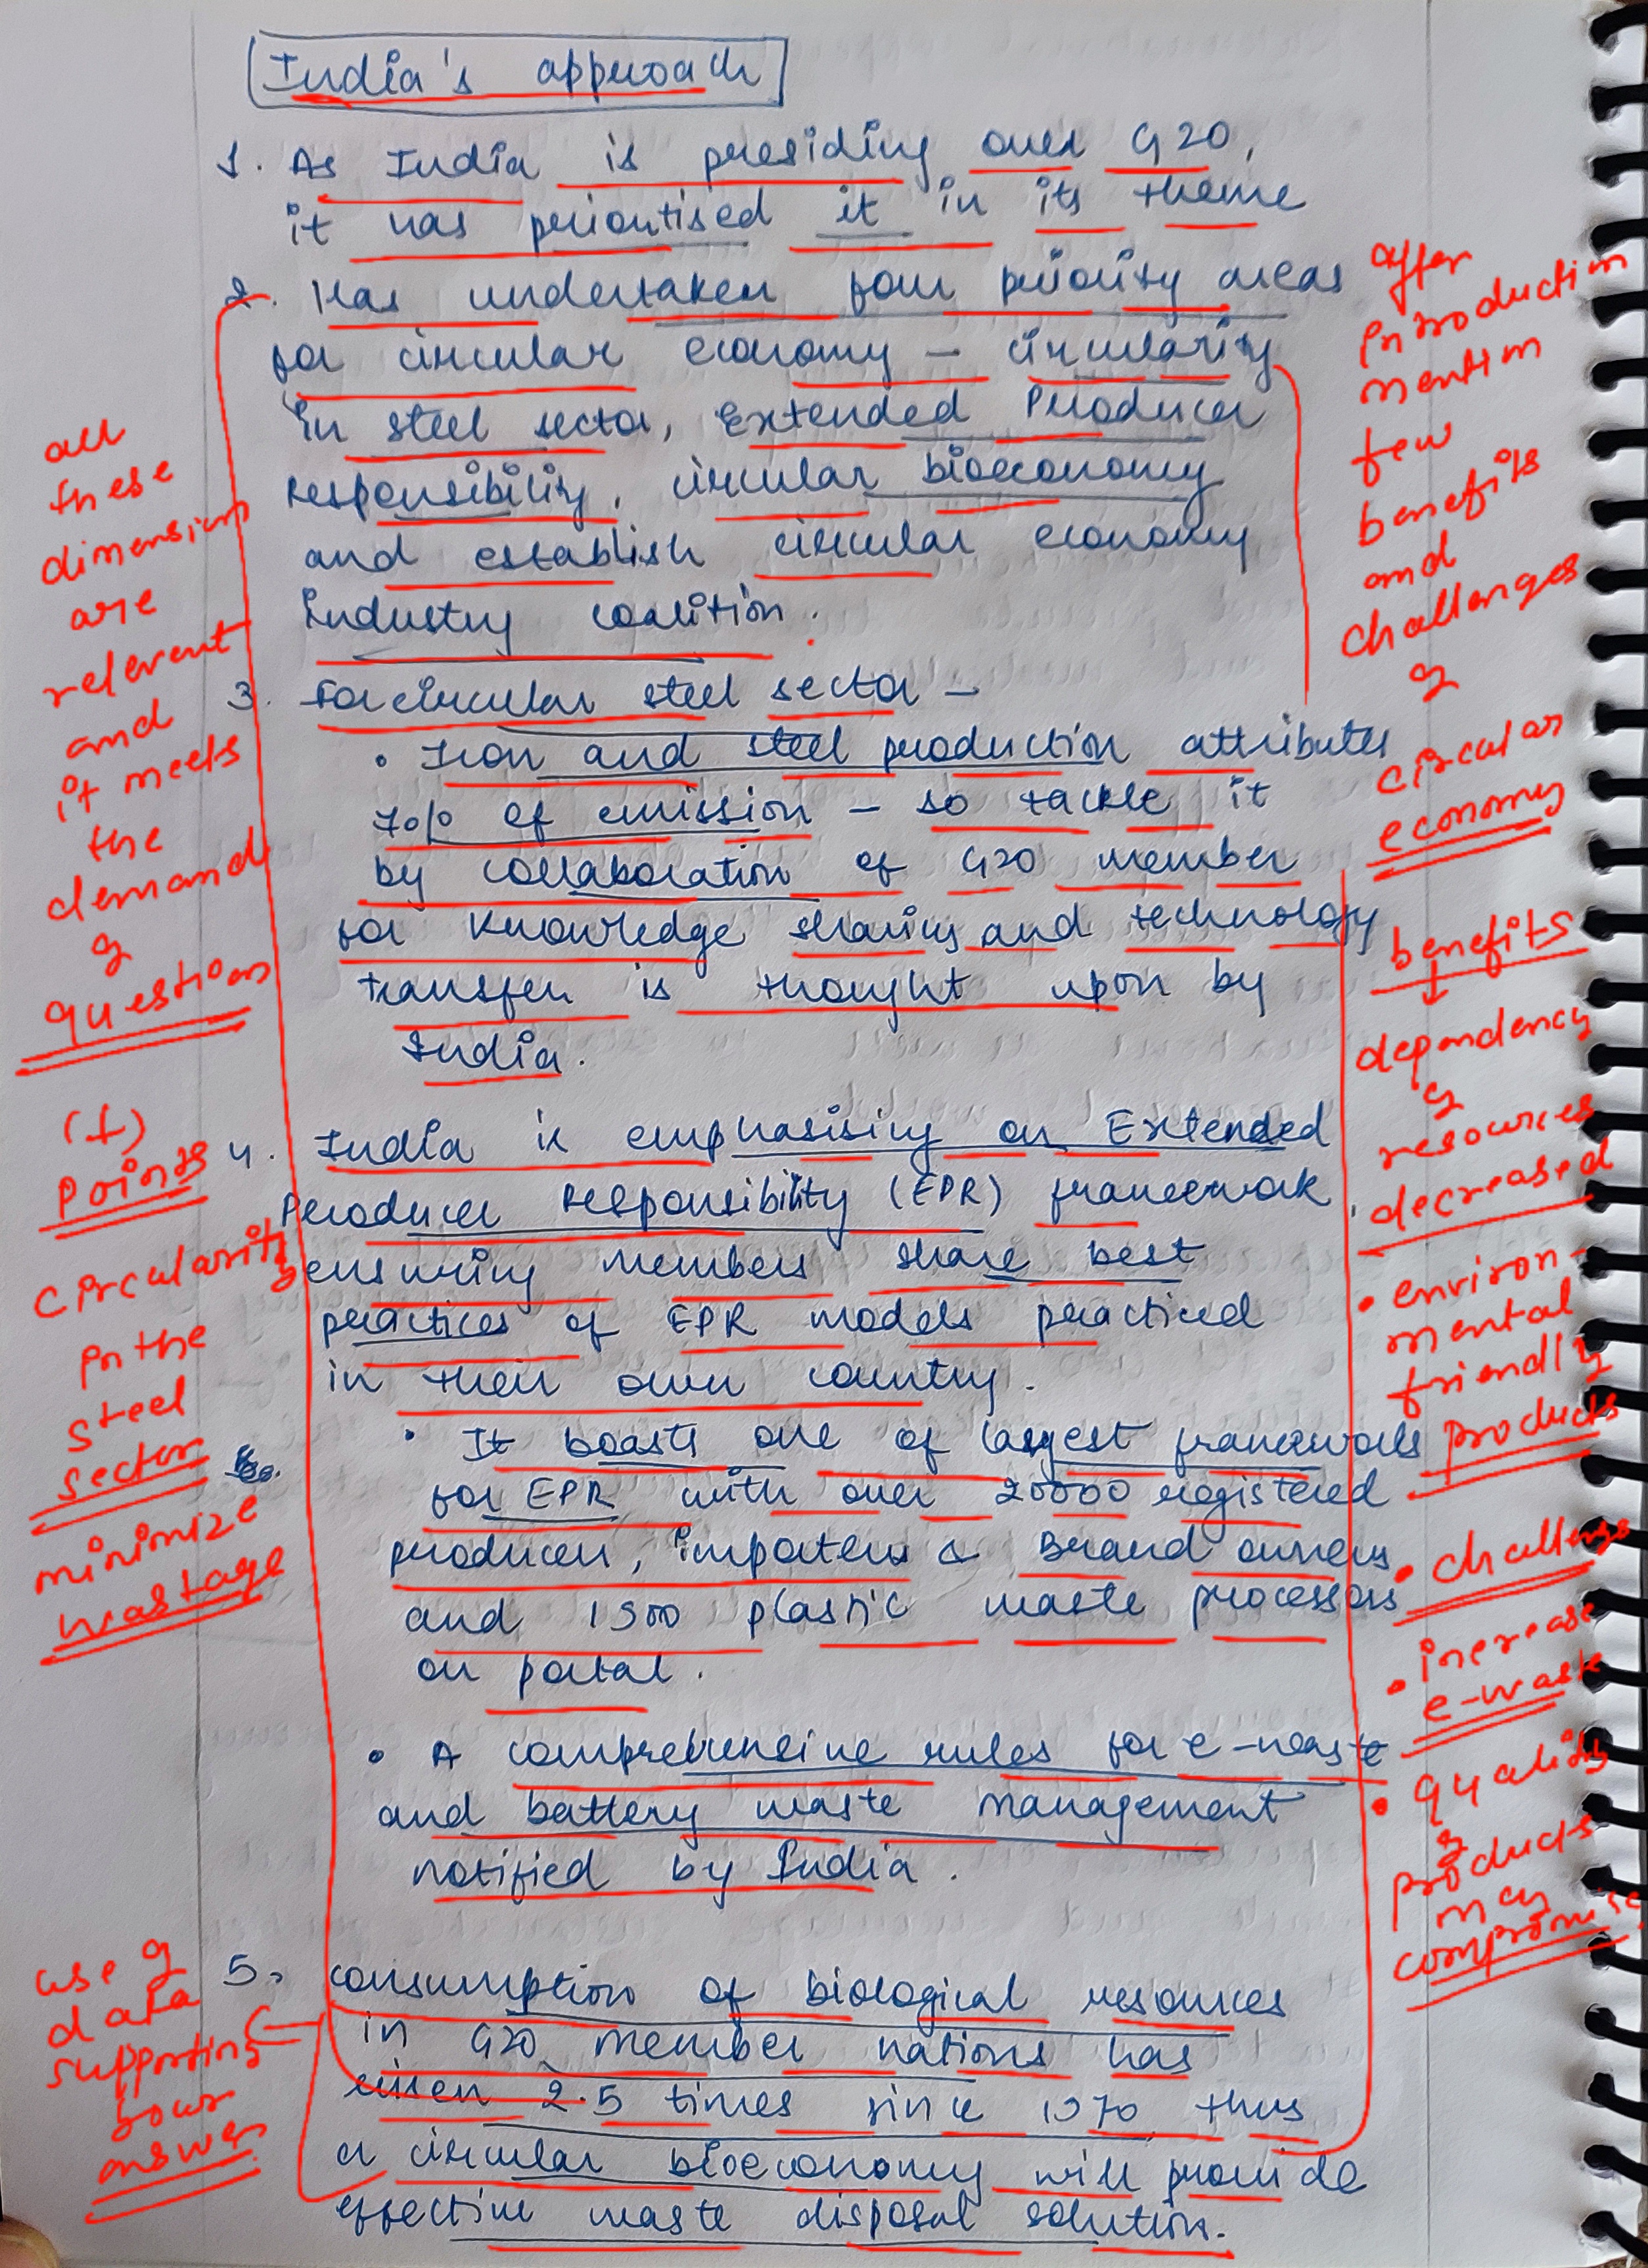 India's approach
1. As India is presiding over G20,
it has prioritised it in its theme
2. Has undertaken four priority areas
for circular economy - circularity
in steel sector, Extended Producer
responsibility, circular bioeconomy
and establish circular economy
industry coalition.
3. For circular steel sector -
• Iron and steel production attributes
7% of emission - so tackle it
by collaboration of G20 member
for knowledge sharing and technology
transfer is thought upon by
India.
4. India is emphasising on Extended
Producer Responsibility (EPR) framework,
ensuring members share best
practices of EPR models practiced
in their own country.
• It boasts one of largest frameworks
for EPR with over 20000 registered
producer, importers & Brand owners
and 1900 plastic waste processors
on portal.
• A comprehensive rules for e-waste
and battery waste management
notified by India.
5. Consumption of biological resources
in G20 member nations has
risen 2.5 times since 1970 thus
a circular bioeconomy will provide
effective waste disposal solution.
all
these
dimension
are
relevent
and
it meets
the
demand
of
question
(+)
points
circularity
in the
steel
sector
minimize
wastage
use of
data
supporting
your
answer
after
introduction
mention
few
benefits
and
challenges
of
circular
economy
benefits
↓
dependency
of
resources
decreased
• environ-
mental
friendly
products
• challenge
• increase
e-waste
• quality
of
products
may
compromise